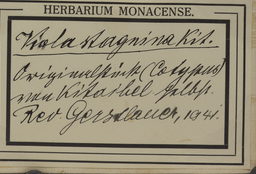 HERBARIUM MONACENSE.
Viola stagnina Kit.
Originalstück (Cotypus)
von Kitaibel selbst.
Rev Gerstlauer, 1941.